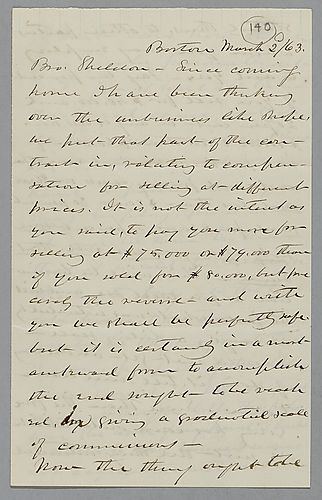 140
Boston March 2/63.
Bro. Sheldon - Since coming
home I have been thinking
over the unbusiness like shape
we put that part of the con-
tract in, relating to compen-
sation for selling at different
prices. It is not the intent as
you said, to pay you more for
selling at $75,000 or $79,000 than
if you sold for $80,000, but pre
cisely the reverse - and with
you we shall be perfectly safe
but it is certainly in a most
awkward form to accomplish
the end sought - to be reach
ed, by giving a graduated scale
of commissions -
Now the thing ought to be